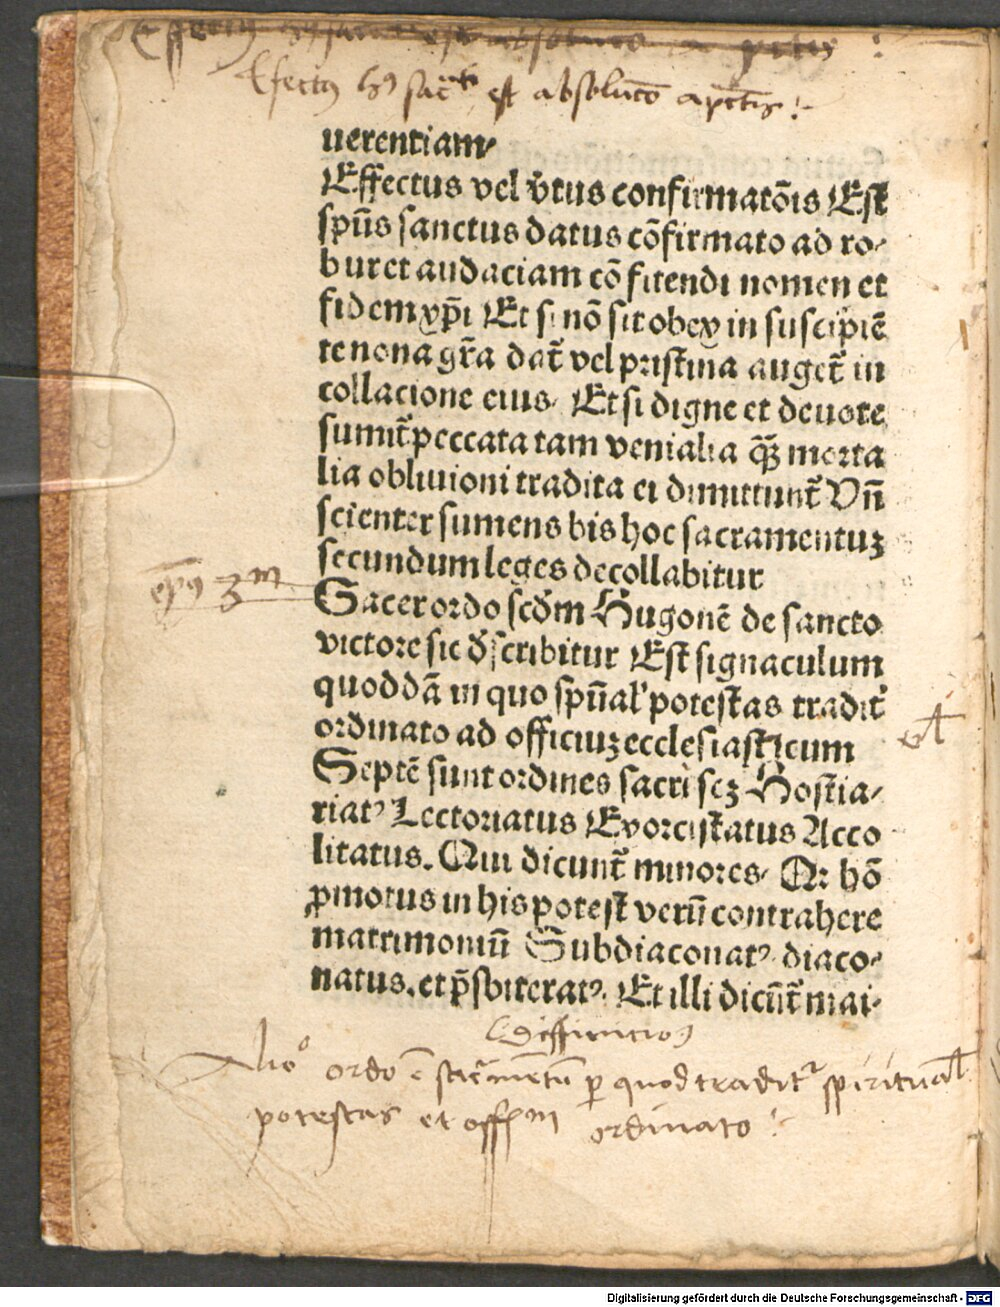 Effectus hui9 sac̄ti est absolutio a pctis :
Effectus h9 sac̄ti est absolutō a pctīs :
uerentiam
Effectus vel v̓tus confirmatōis Est
spūs sanctus datus cōfirmato ad ro⸗
bur et audaciam cōfitendi nomen et
fidem xp̄i Et si nō sit obex in suscipiē
te nona gr̄a dat̄ vel pristina auget̄ in
collacione eius Et si digne et deuote
sumit̄ peccata tam venialia q̄ꝫ morta
lia obliuioni tradita ei dimittunt̄ Vn̄
scienter sumens bis hoc sacramentuꝫ
secundum leges decollabitur
Sacer ordo scd̄m Hugonē de sancto
victore sic dscribitur Est signaculum
quoddā in quo spūal' potestas tradit̄
ordinato ad officiuꝫ ecclesiasticum
Septē sunt ordines sacri scꝫ Hostia⸗
riat9 Lectoriatus Exorcistatus Acco
litatus. Qui dicunt̄ minores Qr hō
ꝓmotus in his potest verū contrahere
matrimoniū Subdiaconat9 diaco⸗
natus. et p̄sbiterat9. Et illi dicūt̄ mai⸗
ep̄9 3m
vel
Diffinicio
Alio° ordo ē sac̄metū ꝑ quod tradit͛ spiritual
potestas et offm ordinato :
Digitalisierung gefördert durch die Deutsche Forschungsgemeinschaft - DFG